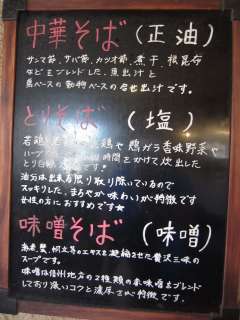 中華そば（正油）
サンマ節、サバ節、カツオ節、煮干、根昆布
などをブレンドした、魚出汁と
鳥ベースの動物ベースの合せ出汁です。
とりそば（塩）
若鶏 鶏や 鶏ガラ 香味野菜や
時間をかけて炊出した
とり白
油分は出来る限り取り除いているので
スッキリした、まろやかな味わいが特徴です
女性の方におすすめです★
味噌そば（味噌）
のエキスを凝縮させた贅沢三昧の
スープです。
味噌は信州地方の2種類の 味噌をブレンド
しており深いコクと濃厚さが特徴です。